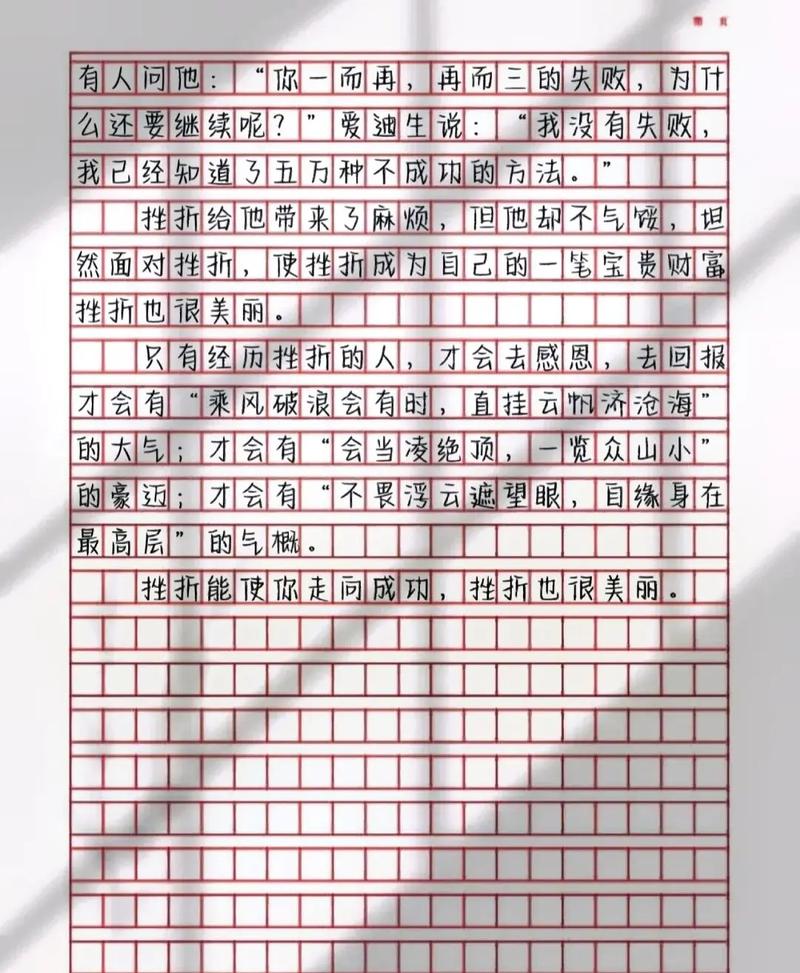 有人问他：“你一而再，再而三的失败，为什
么还要继续呢？”爱迪生说：“我没有失败，
我已经知道了五万种不成功的方法。”
挫折给他带来了麻烦，但他却不气馁，坦
然面对挫折，使挫折成为自己的一笔宝贵财富
挫折也很美丽。
只有经历挫折的人，才会去感恩，去回报
才会有“乘风破浪会有时，直挂云帆济沧海”
的大气；才会有“会当凌绝顶，一览众山小”
的豪迈；才会有“不畏浮云遮望眼，自缘身在
最高层”的气概。
挫折能使你走向成功，挫折也很美丽。